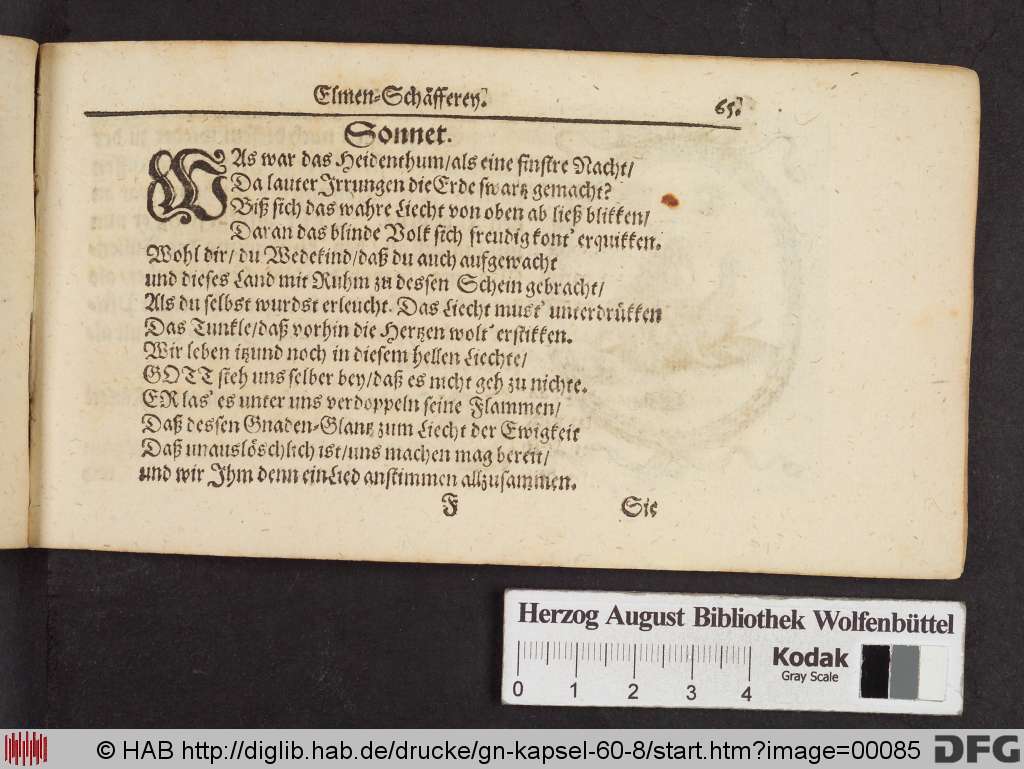 Elmen-Schäfferey. 65.
Sonnet.
WAs war das Heidenthum/als eine finstre Nacht/
Da lauter Jrrungen die Erde swartz gemacht?
Biß sich das wahre Liecht von oben ab ließ blikken/
Daran das blinde Volk sich freudig kont' erquikken.
Wohl dir/ du Wedekind/daß du auch aufgewacht
und dieses Land mit Ruhm zu dessen Schein gebracht/
Als du selbst wurdst erleucht. Das Liecht must' unterdrükken
Das Tunkle/daß vorhin die Hertzen wolt' erstikken.
Wir leben itzund noch in diesem hellen Liechte/
GOTT steh uns selber bey/daß es nicht geh zu nichte.
ER las' es unter uns verdoppeln seine Flammen/
Daß dessen Gnaden-Glantz zum Liecht der Ewigkeit
Daß unauslöschlich ist/uns machen mag bereit/
und wir Jhm denn ein Lied anstimmen allzusammen.
F Sie
Herzog August Bibliothek Wolfenbüttel
Kodak
Gray Scale
0 1 2 3 4
© HAB http://diglib.hab.de/drucke/gn-kapsel-60-8/start.htm?image=00085 DFG